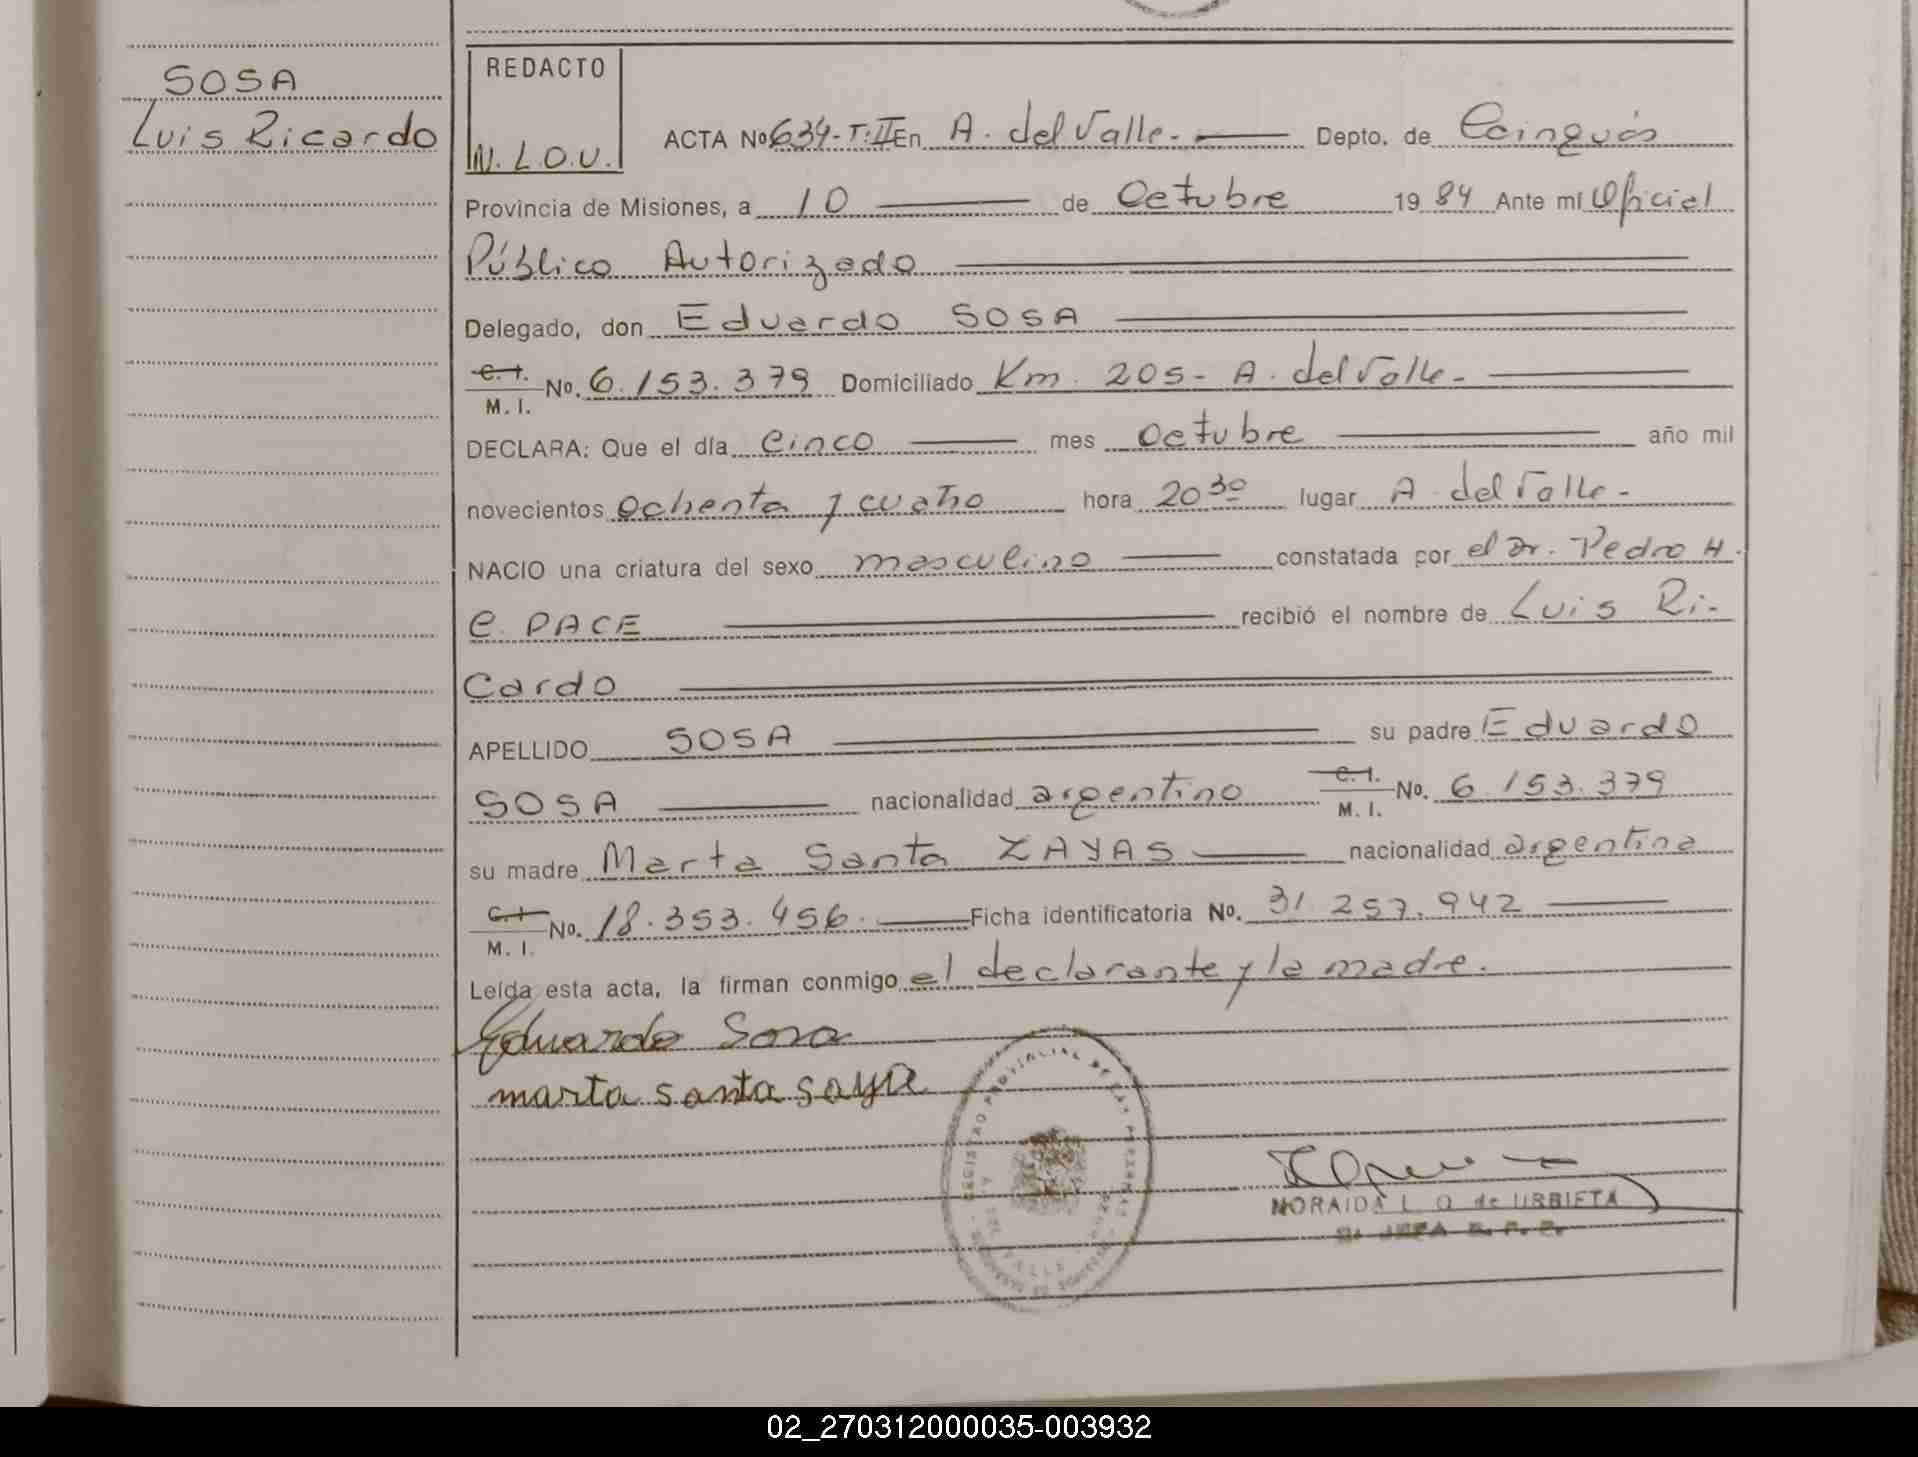 SOSA
Luis Ricardo
REDACTO
N.L.O.U.
ACTA No 634-T:II En A. del Valle.- Depto. de Cainguás
Provincia de Misiones, a 10 de Octubre 1984 Ante mí Oficial
Público Autorizado
Delegado, don Eduardo SOSA
C. I. M. I. No. 6.153.379 Domiciliado Km. 205- A. del Valle.-
DECLARA: Que el día cinco mes Octubre año mil
novecientos ochenta y cuatro hora 20 30 lugar A. del Valle.-
NACIO una criatura del sexo masculino constatada por el Dr. Pedro H.
C. PACE recibió el nombre de Luis Ri-
cardo
APELLIDO SOSA su padre Eduardo
SOSA nacionalidad argentino C. I. M. I. No. 6.153.379
su madre Marta Santa ZAYAS nacionalidad argentina
C. I. M. I. No. 18.353.456.- Ficha identificatoria No. 31.257.942
Leída esta acta, la firman conmigo el declarante y la madre.
Eduardo Sosa
marta santa saya
REGISTRO PROVINCIAL DE LAS PERSONAS
NORAIDA L. O. de URBIETA
JEFA R. P. P.
02_270312000035-003932